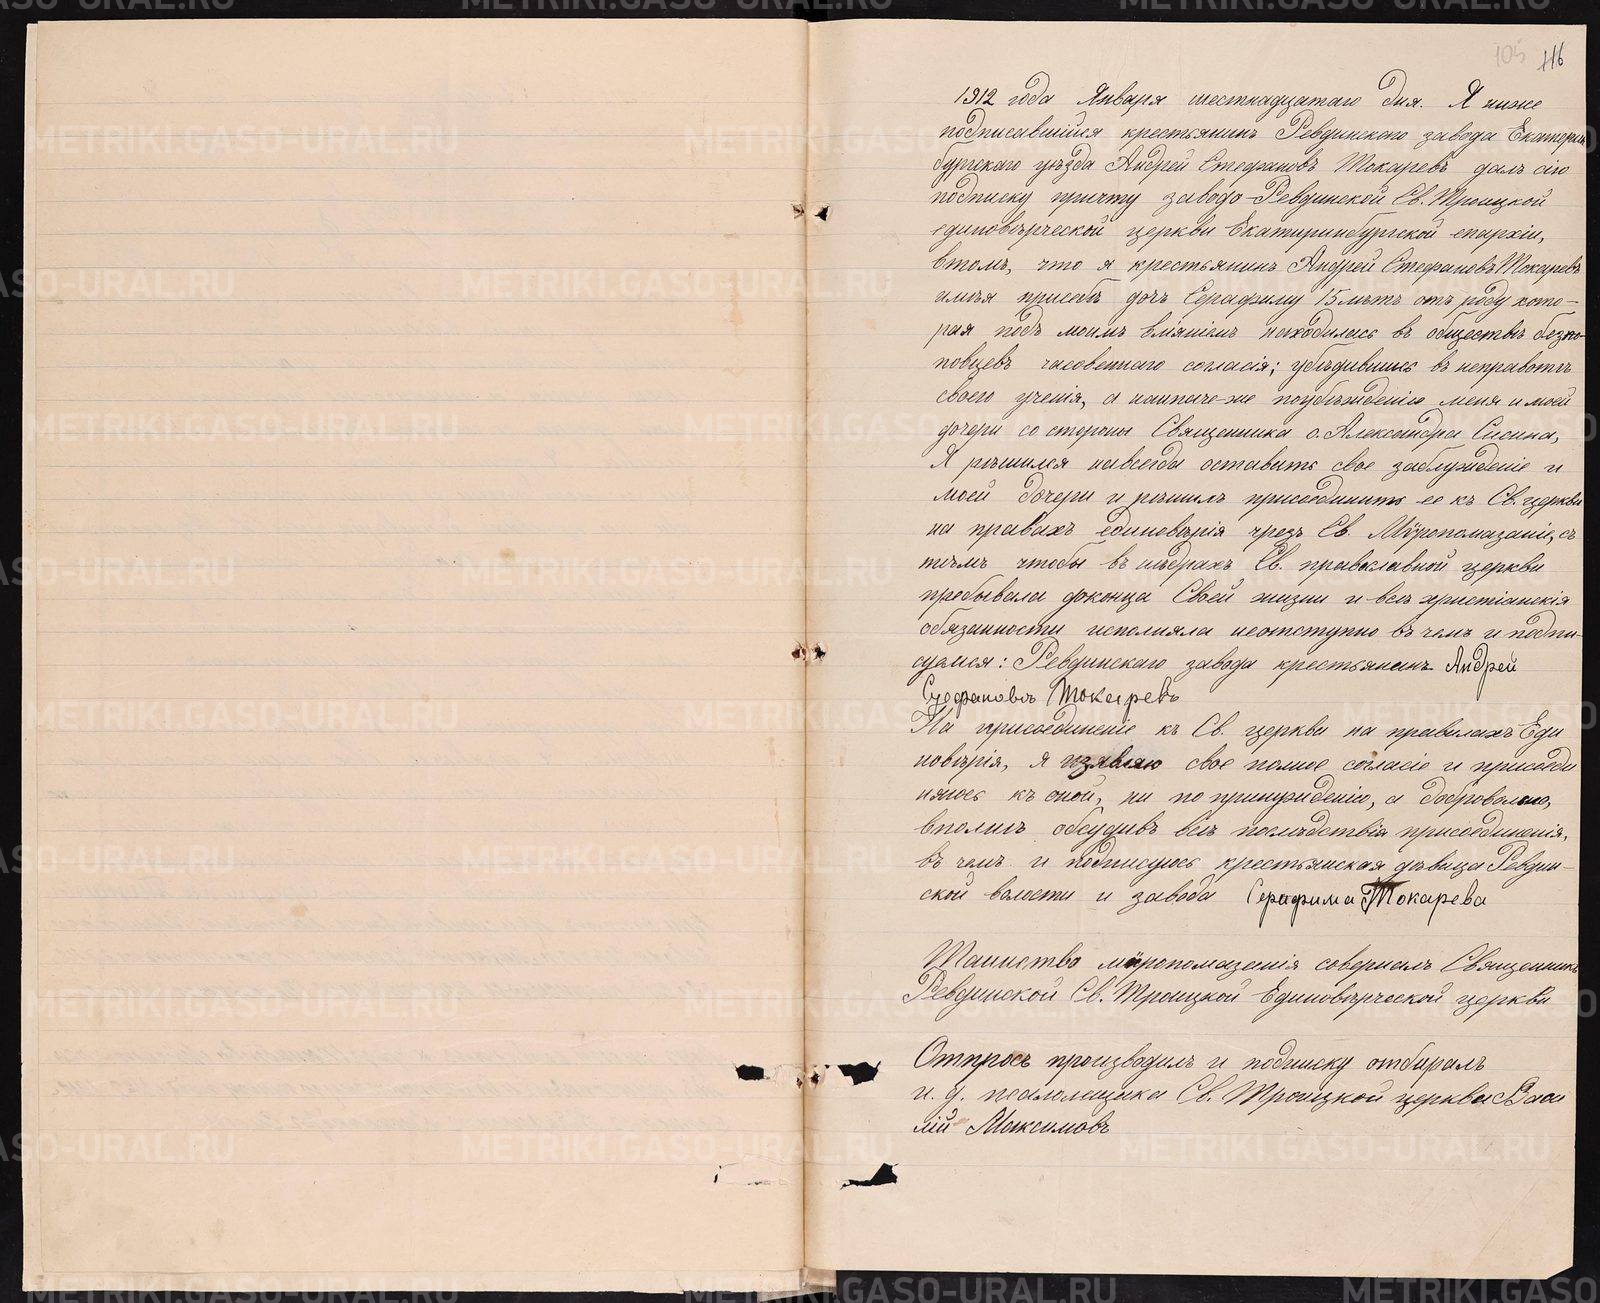 105 116
1912 года Января шестнадцатаго дня. Я ниже
подписавшійся крестьянинъ Ревдинскаго завода Екатерин
бургскаго уѣзда Андрей Стефановъ Токаревъ далъ сію
подписку причту заводо-Ревдинской Св. Троицкой
единовѣрческой церкви Екатиринбургской епархіи,
втомъ, что я крестьянинъ Андрей Стефановъ Токаревъ
имѣя присебѣ дочь Серафиму 15 лѣтъ отъ роду кото-
рая подъ моимъ вліяніемъ находилась въ обществѣ безпо-
повцевъ часовеннаго согласія; убѣдившись въ неправотѣ
своего ученія, а наипаче-же поубѣжденію меня и моей
дочери со стороны Священника о. Александра Сисина,
Я рѣшился навсегда оставить свое заблужденіе и
моей дочери и рѣшилъ присоединить ее къ Св. церкви
на правахъ единовѣрія чрезъ Св. Мѵропомазаніе, съ
тѣмъ чтобы въ нѣдрахъ Св. православной церкви
пребывала доконца Своей жизни и всѣ христіанскія
обязанности исполняла неотступно въ чемъ и подпи-
суемся: Ревдинскаго завода крестьянинъ Андрей
Стефановъ Токаревъ
На присоединеніе къ Св. церкви на правилахъ Еди
новѣрія, я изявляю свое полное согласіе и присоеди
няюсь къ оной, ни по принужденію, а добровольно,
вполнѣ обсудивъ всѣ послѣдствія присоединенія,
въ чемъ и подписуюсь крестьянская дѣвица Ревдин-
ской волости и завода Серафима Токарева
Таинство мѵропомазанія совершалъ Священникъ
Ревдинской Св. Троицкой Единовѣрческой церкви
Отпросъ производилъ и подписку отбиралъ
и. д. псаломщика Св. Троицкой церкви Васи
лій Максимовъ
METRIKI.GASO-URAL.RU